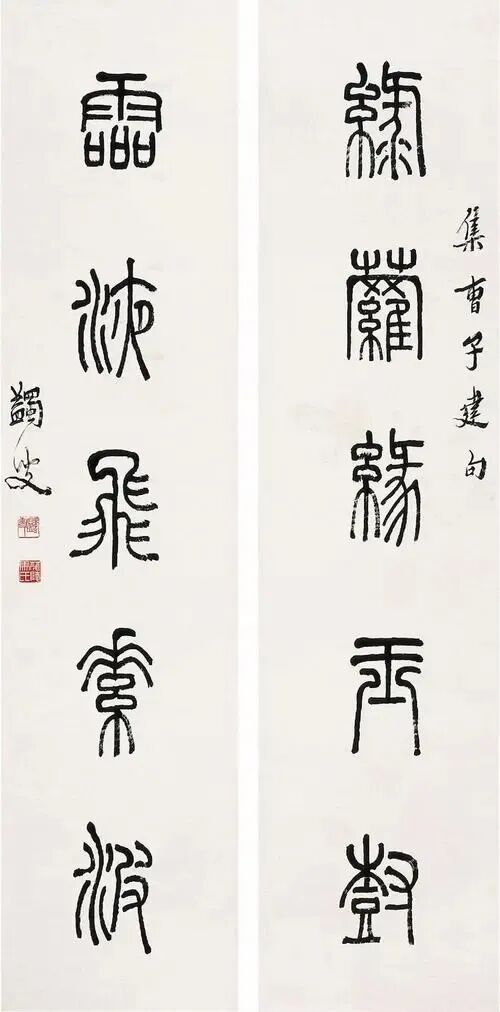 綠蘿緣玉樹
集曹子建句
靈液飛素波
蠲叟